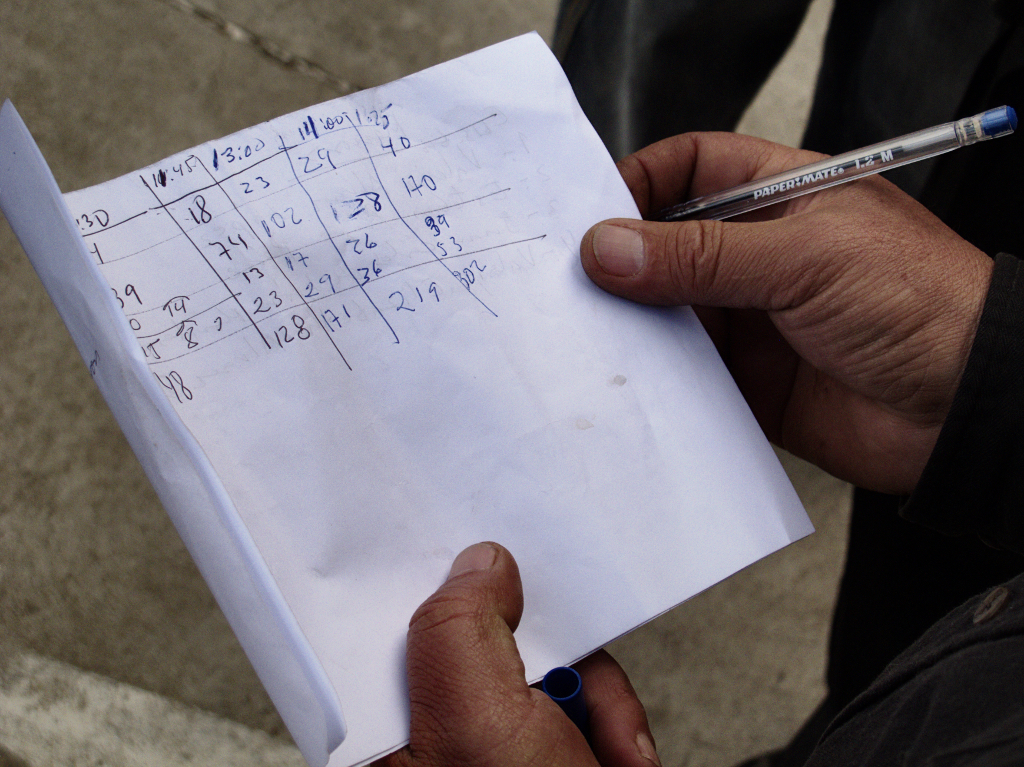 11:45 13:00 14:00 1:25
:30 18 23 29 40
4 74 102 128 170
39 13 17 26 39
0 14 23 29 36 53
15 8 128 171 219 302
48
PAPER:MATE® 1.2 M